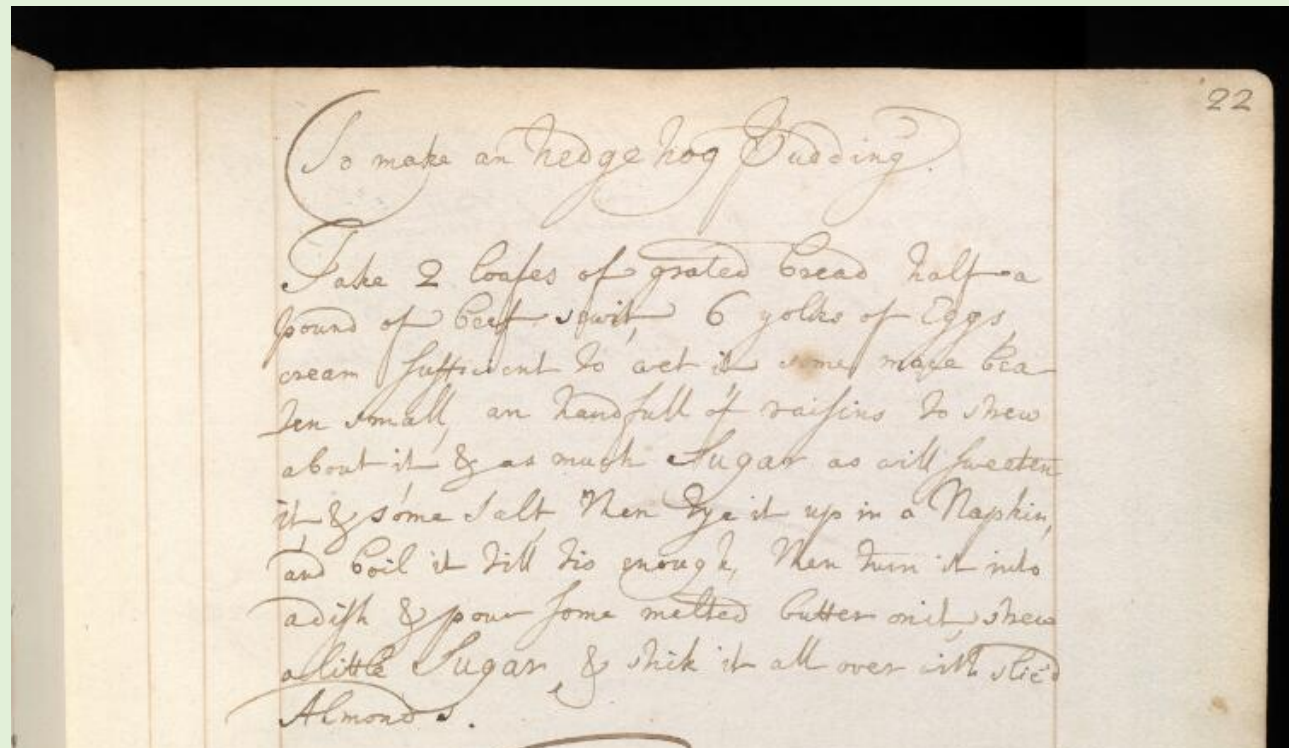 22
To make an hedge hog Pudding.
Take 2 loafes of grated bread half a
pound of beef sewit, 6 yolks of Eggs,
cream sufficient to wet it some mace bea
ten small, an handfull of raisins to strew
about it, & as much Sugar as will sweeten
it, & some Salt, Then tye it up in a Napkin,
and boil it till tis enough, Then turn it into
a dish & pour some melted butter on it, strew
a little Sugar, & stick it all over with slic'd
Almonds.